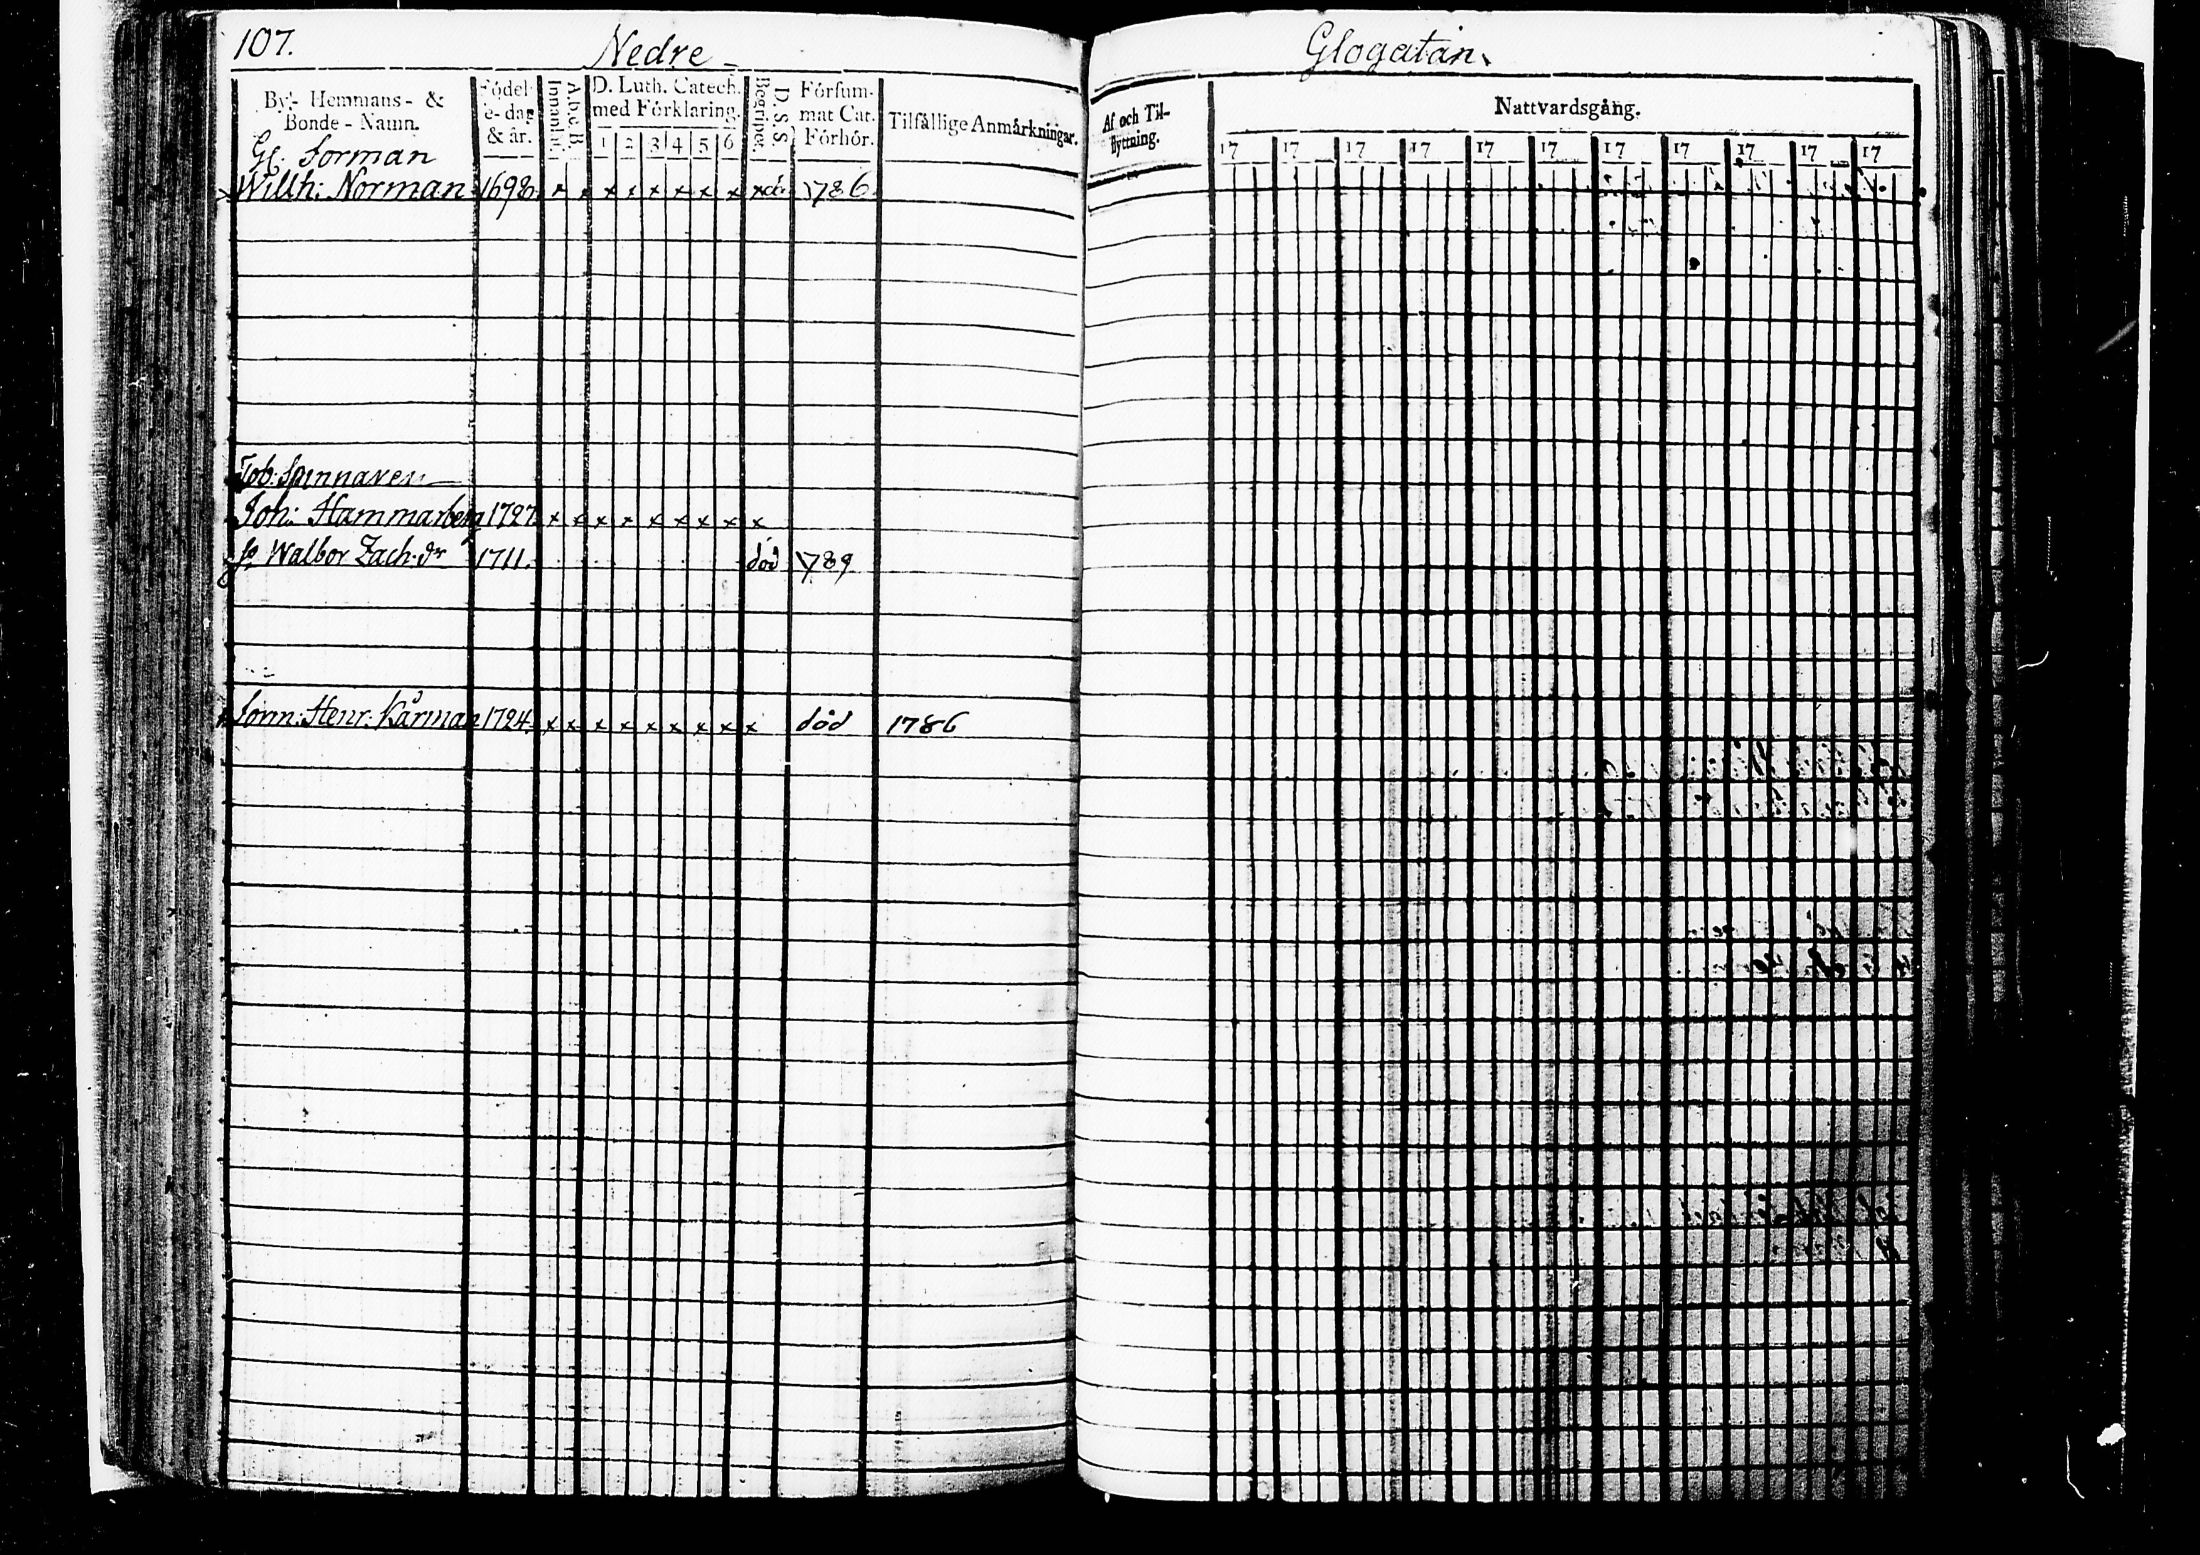 107. Nedre Glogatan.
By- Hemmans- & Bonde-Namn. Födelse-dag & år. Innanläs. A.b.c.B. D. Luth. Catech. med Förklaring. 1 2 3 4 5 6 Begriper D. S. S. Försummat Cat. Förhör. Tilfällige Anmärkningar. Af och Til-Flyttning. Nattvardsgång.
17 17 17 17 17 17 17 17 17 17 17
Gl. Sorman
Willh: Norman 1698. x x x x x x x x x 1786.
Tob: Spinnaren
Joh: Hammarberg 1727 x x x x x x x x x
Walbor Zach:dr 1711. död 1789
Henr: Kårman 1724. x x x x x x x x x död 1786